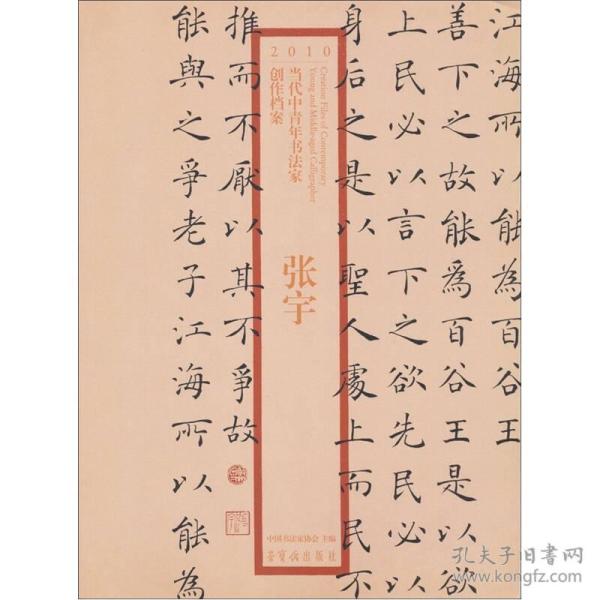 江海所以能為百谷王
善下之故能為百谷王是以欲
上民必以言下之欲先民必以
身后之是以聖人處上而民不
2010
Creation Files of Contemporary
Young and Middle-aged Calligrapher
当代中青年书法家
创作档案
张宇
中国书法家协会 主编
荣宝斋出版社
推而不厭以其不爭故
能與之爭老子江海所以能為
孔夫子旧书网
www.kongfz.com